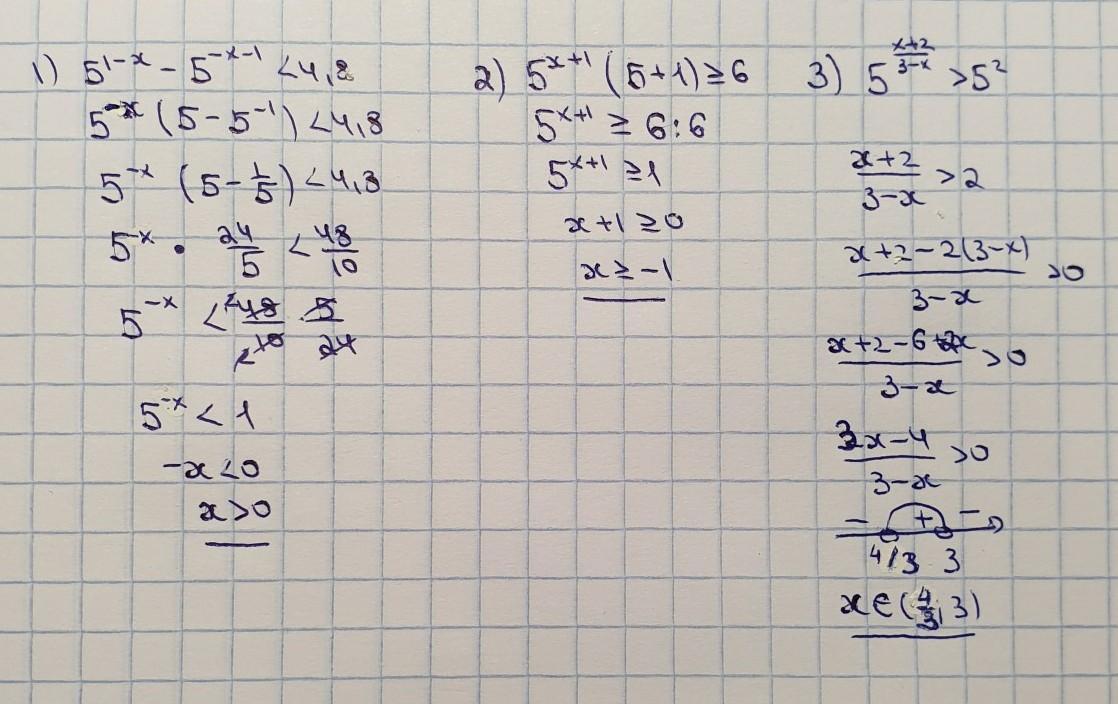 1) 5^{1-x} - 5^{-x-1} < 4,8
5^{-x} (5 - 5^{-1}) < 4,8
5^{-x} (5 - \frac{1}{5}) < 4,8
5^{-x} • \frac{24}{5} < \frac{48}{10}
5^{-x} < \frac{48}{10} · \frac{5}{24}
5^{-x} < 1
-x < 0
x > 0
2) 5^{x+1} (5+1) ≥ 6
5^{x+1} ≥ 6:6
5^{x+1} ≥ 1
x+1 ≥ 0
x ≥ -1
3) 5^{\frac{x+2}{3-x}} > 5^2
\frac{x+2}{3-x} > 2
\frac{x+2-2(3-x)}{3-x} > 0
\frac{x+2-6+2x}{3-x} > 0
\frac{3x-4}{3-x} > 0
- + -
4/3 3
x ∈ (\frac{4}{3}, 3)